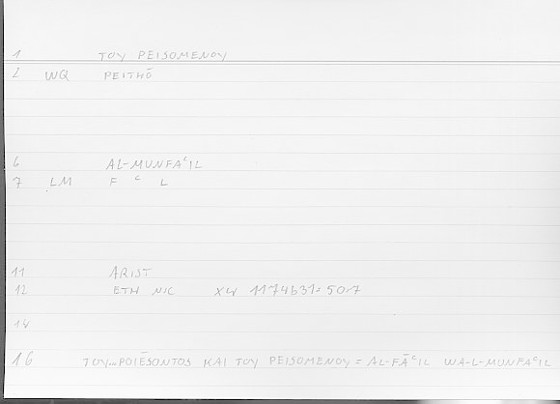 1 TOY PEISOMENOY
2 WQ PEITHŌ
6 AL-MUNFAᶜIL
7 LM F ᶜ L
11 ARIST
12 ETH NIC X 4 1174b31=50.7
14
16 TOY...POIĒSONTOS KAI TOY PEISOMENOY = AL-FĀᶜIL WA-L-MUNFAᶜIL